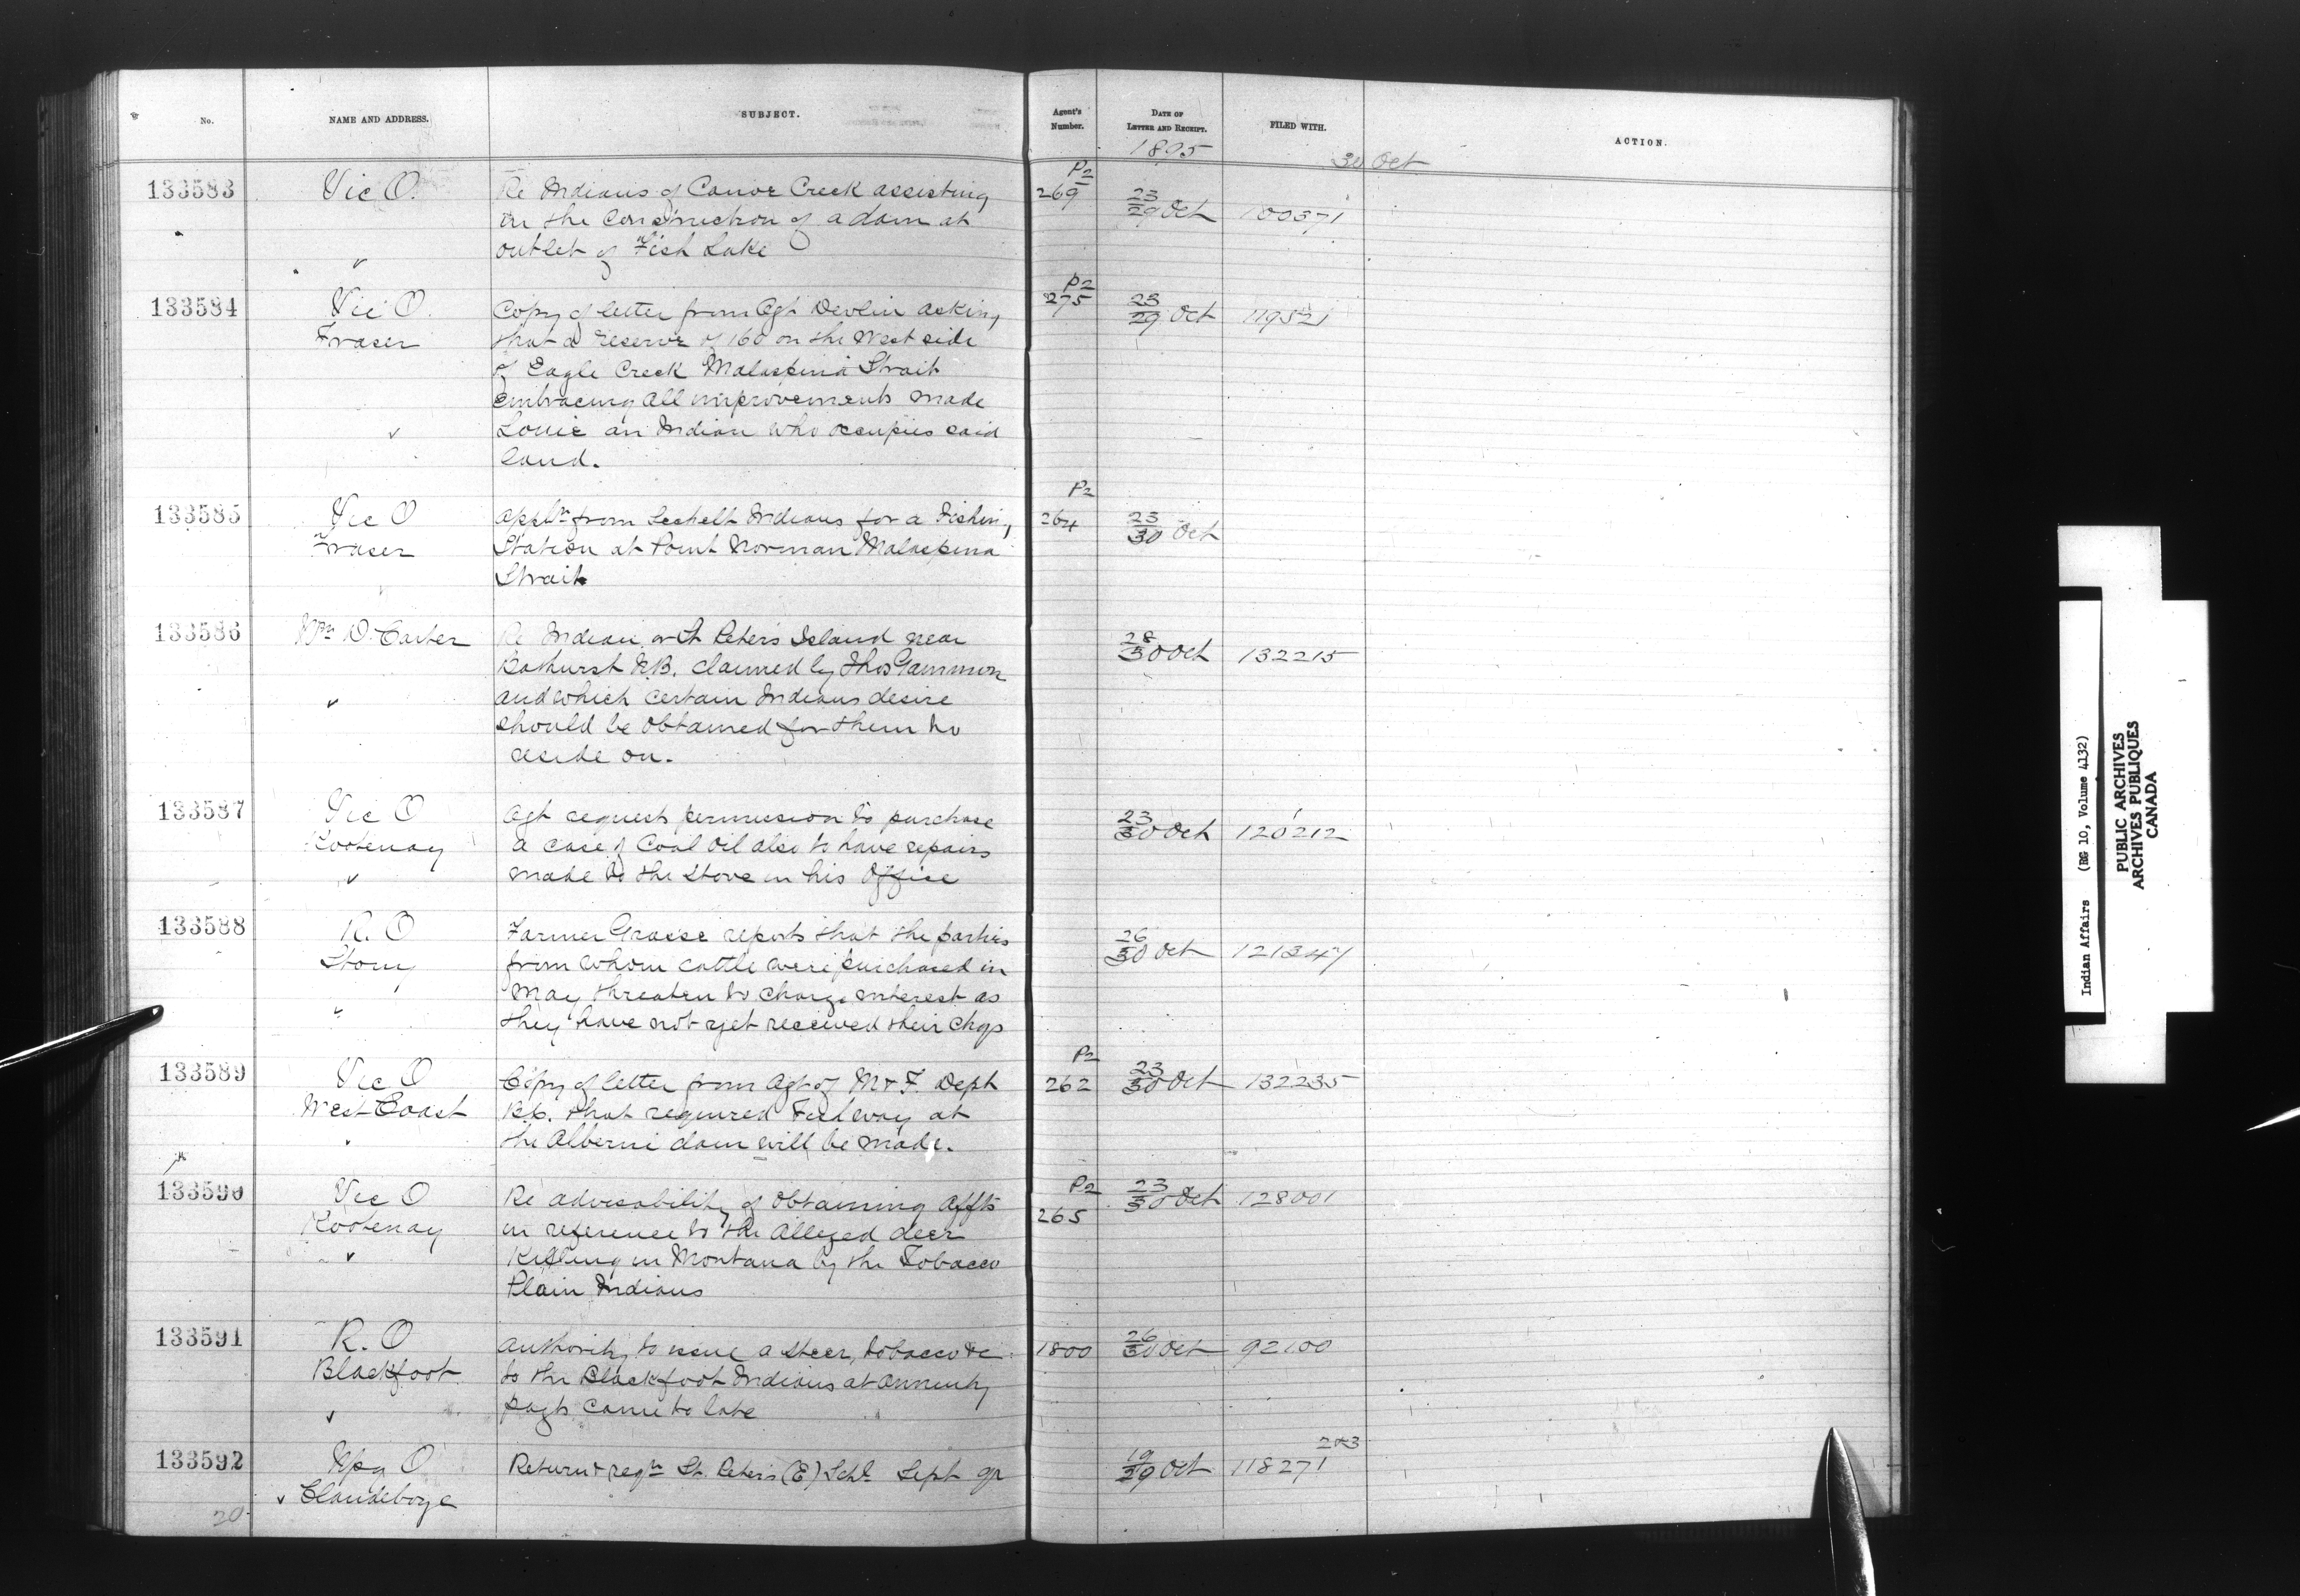 No. NAME AND ADDRESS. SUBJECT. Agent's Number. DATE OF LETTER AND RECEIPT. FILED WITH. ACTION.
1895
30 Oct
133583 Vic O. Re Indians of Canoe Creek assisting P2 269 23/29 Oct 100371
in the construction of a dam at
outlet of Fish Lake
133584 Vic O. Copy of letter from Agt Devlin asking P2 275 23/29 Oct 119521
Fraser that a reserve of 160 on the West side
of Eagle Creek Malaspina Strait
embracing all improvements made
Louie an Indian who occupies said
land.
133585 Vic O Appln from Sechelt Indians for a Fishing P2 264 23/30 Oct
Fraser Station at Point Norman Malaspina
Strait
133586 Wm D. Carter Re Indian or St Peters Island near 28/30 Oct 132215
Bathurst N.B. claimed by Thos Gammon
and which certain Indians desire
should be obtained for them to
reside on.
133587 Vic O Agt request permission to purchase 23/30 Oct 120212
Kootenay a case of Coal Oil also to have repairs
made to the stove in his Office
133588 R. O Farmer Grasse reports that the parties 26/30 Oct 121347
Stony from whom cattle were purchased in
May threaten to charge interest as
they have not yet received their chqs
133589 Vic O Copy of letter from Agt of M & F. Dept P2 262 23/30 Oct 132235
West Coast B.C. that required Fishway at
the Alberni dam will be made.
133590 Vic O Re advisability of obtaining affts P2 265 23/30 Oct 128001
Kootenay in reference to the alleged deer
killing in Montana by the Tobacco
Plain Indians
133591 R. O Authority to issue a steer, tobacco &c 1800 26/30 Oct 92100
Blackfoot to the Blackfoot Indians at annuity
payts came to late
133592 Wpg O Return & reqn St. Peters (E) Schl Sept qr 19/29 Oct 118271 283
Clandeboye
20
Indian Affairs (RG 10, Volume 4132)
PUBLIC ARCHIVES
ARCHIVES PUBLIQUES
CANADA